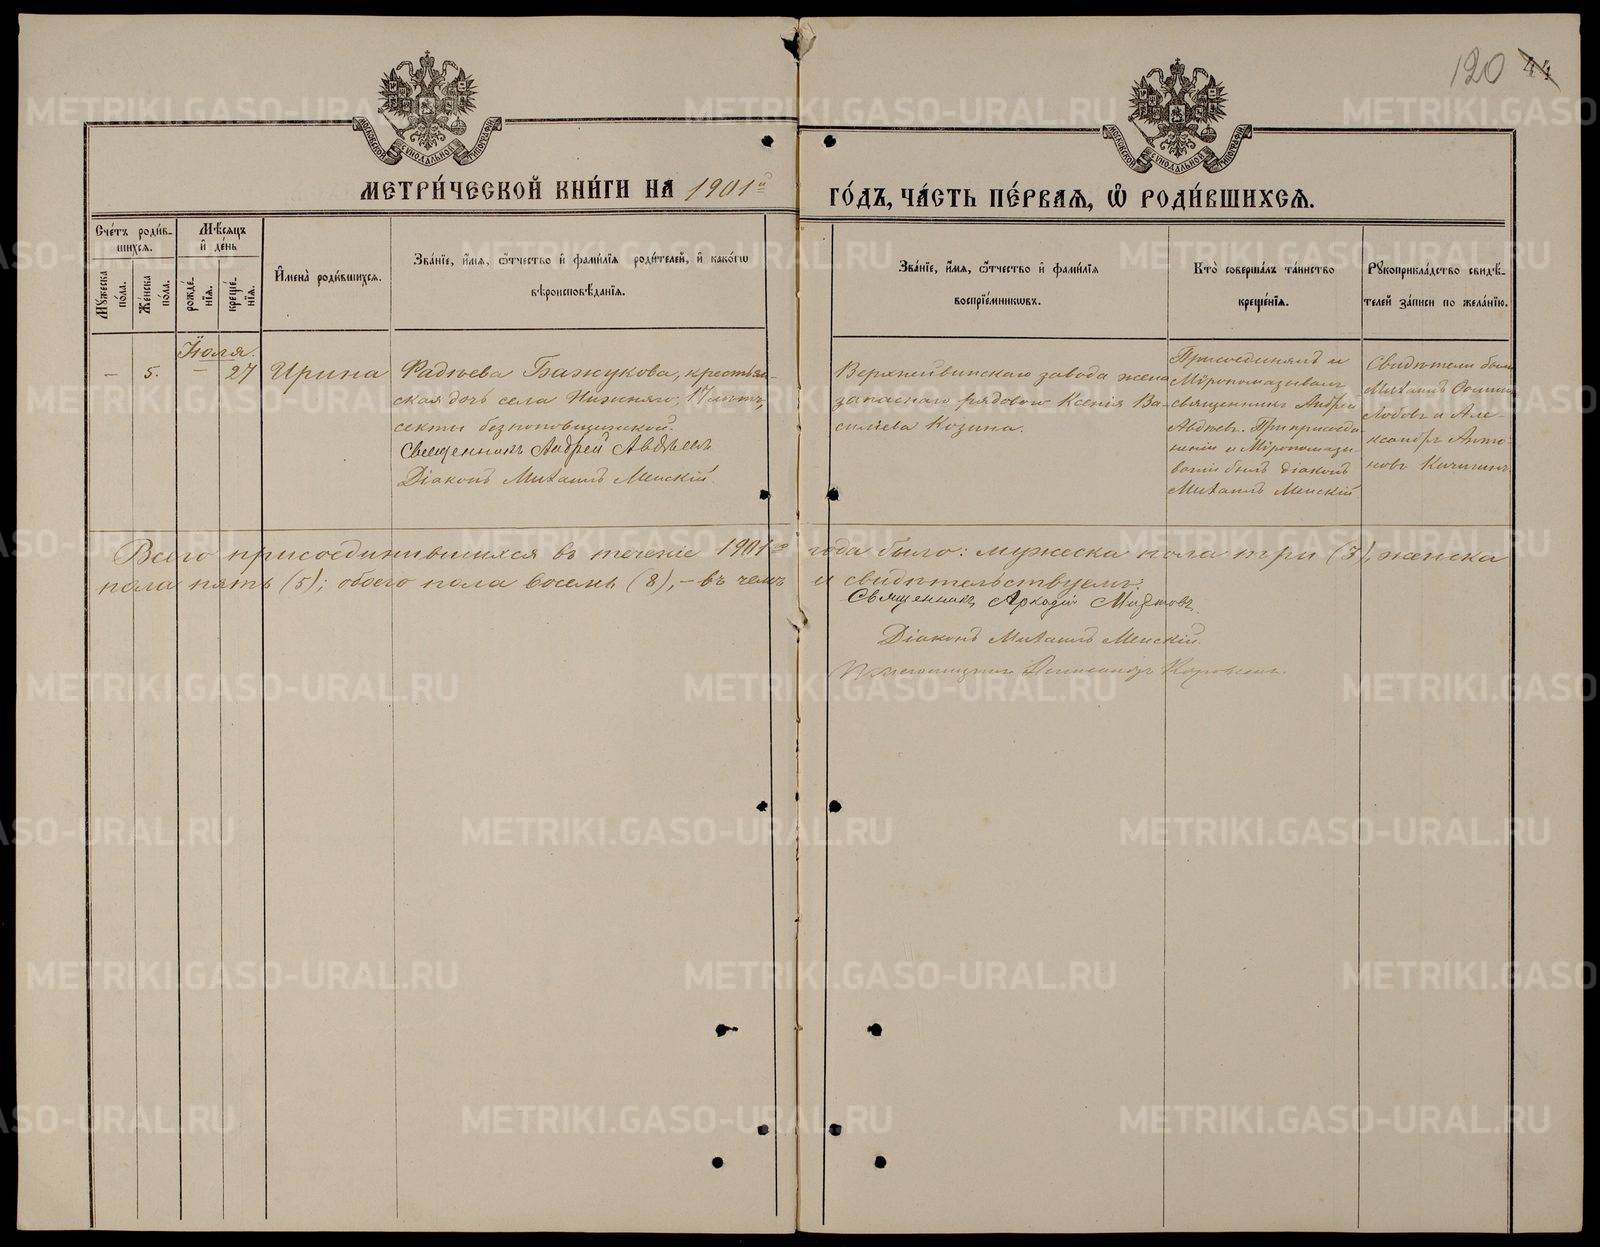 120 44
МОСКОВСКОЙ СѴНОДАЛЬНОЙ ТИПОГРАФІИ
МОСКОВСКОЙ СѴНОДАЛЬНОЙ ТИПОГРАФІИ
МЕТРИ́ЧЕСКОЙ КНИ́ГИ НА 1901й
ГО́ДЪ, ЧА́СТЬ ПЕ́РВАЯ, Ѡ҆ РОДИ́ВШИХСЯ.
Сче́тъ роди́в-
шихся.
Мꙋжеска по́ла.
Же́нска по́ла.
Мѣ́сяцъ
и҆ де́нь
рожде́-
нїя.
креще́-
нїя.
И҆мена̀ роди́вшихся.
Зва́нїе, и҆́мя, ѻ҆́тчество и҆ фамі́лїя роди́телей, и҆ како́гѡ
вѣроисповѣ́данїя.
Зва́нїе, и҆́мя, ѻ҆́тчество и҆ фамі́лїя
воспрїе́мникѡвъ.
Кто̀ соверша́лъ та́инство
креще́нїя.
Рꙋкоприкла́дство свидѣ́-
телей за́писи по жела́нїю.
Іюля.
– 5. – 27 Ирина
Фадѣева Бажукова, крестьян-
ская дочь села Нижняго, 17 лѣтъ,
секты безпоповщинской.
Священникъ Андрей Авдѣевъ
Діаконъ Михаилъ Менскій.
Верхнейвинскаго завода жена
запаснаго рядового Ксенія Ва-
сильева Козина.
Присоединялъ и
Мѵропомазывалъ
священникъ Андрей
Авдѣевъ. При присоеди-
неніи и Мѵропомазы-
ваніи былъ діаконъ
Михаилъ Менскій
Свидѣтели были
Михаилъ
и Але-
ксандръ Анто-
новъ
Всего присоединившихся въ теченіе 1901го года было: мужеска пола три (3), женска
пола пять (5); обоего пола восемь (8), – въ чемъ и свидѣтельствуемъ:
Священникъ Аркадій
Діаконъ Михаилъ Менскій.
Александръ
METRIKI.GASO-URAL.RU